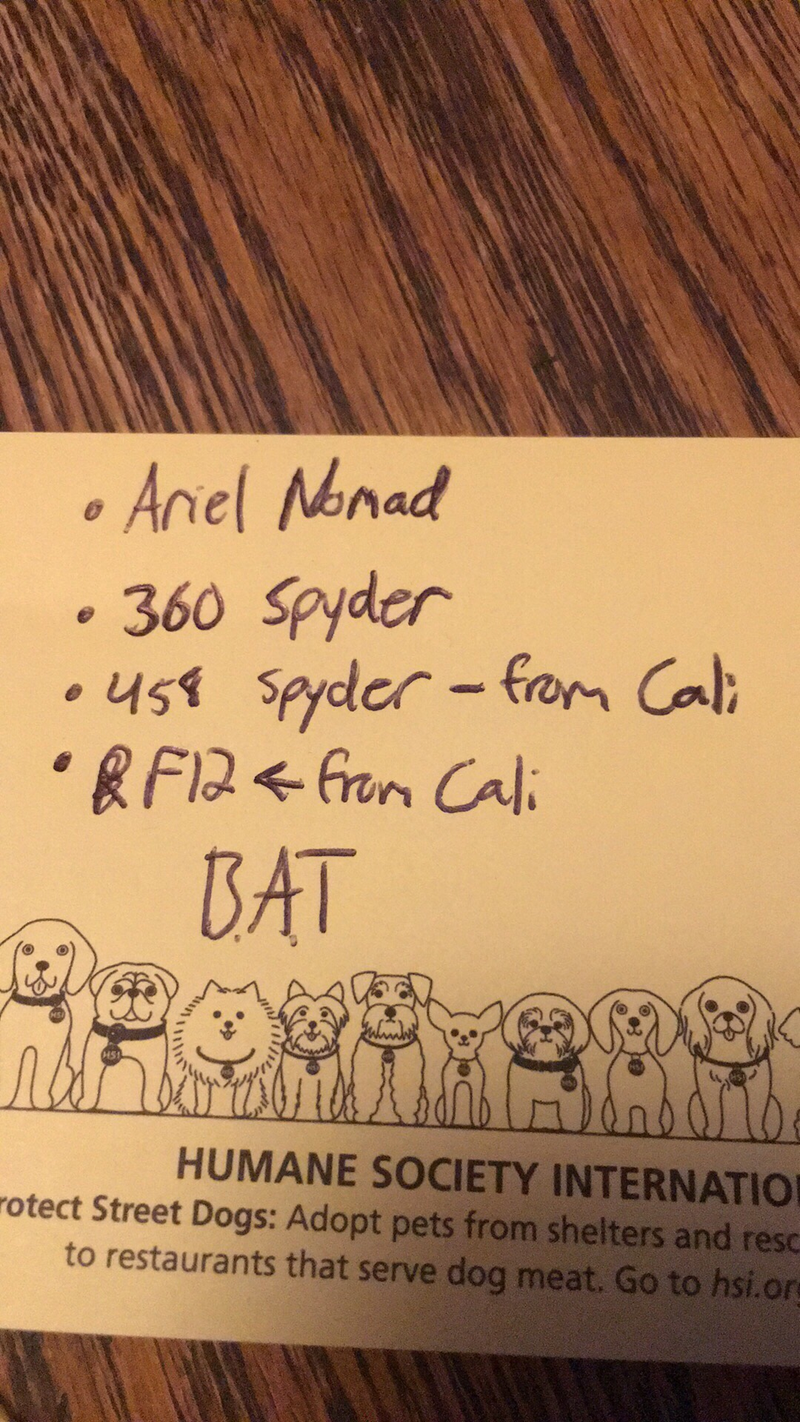 • Ariel Nomad
• 360 Spyder
• 458 Spyder – from Cali
• F12 ← from Cali
B.A.T
HUMANE SOCIETY INTERNATIO
rotect Street Dogs: Adopt pets from shelters and resc
to restaurants that serve dog meat. Go to hsi.org